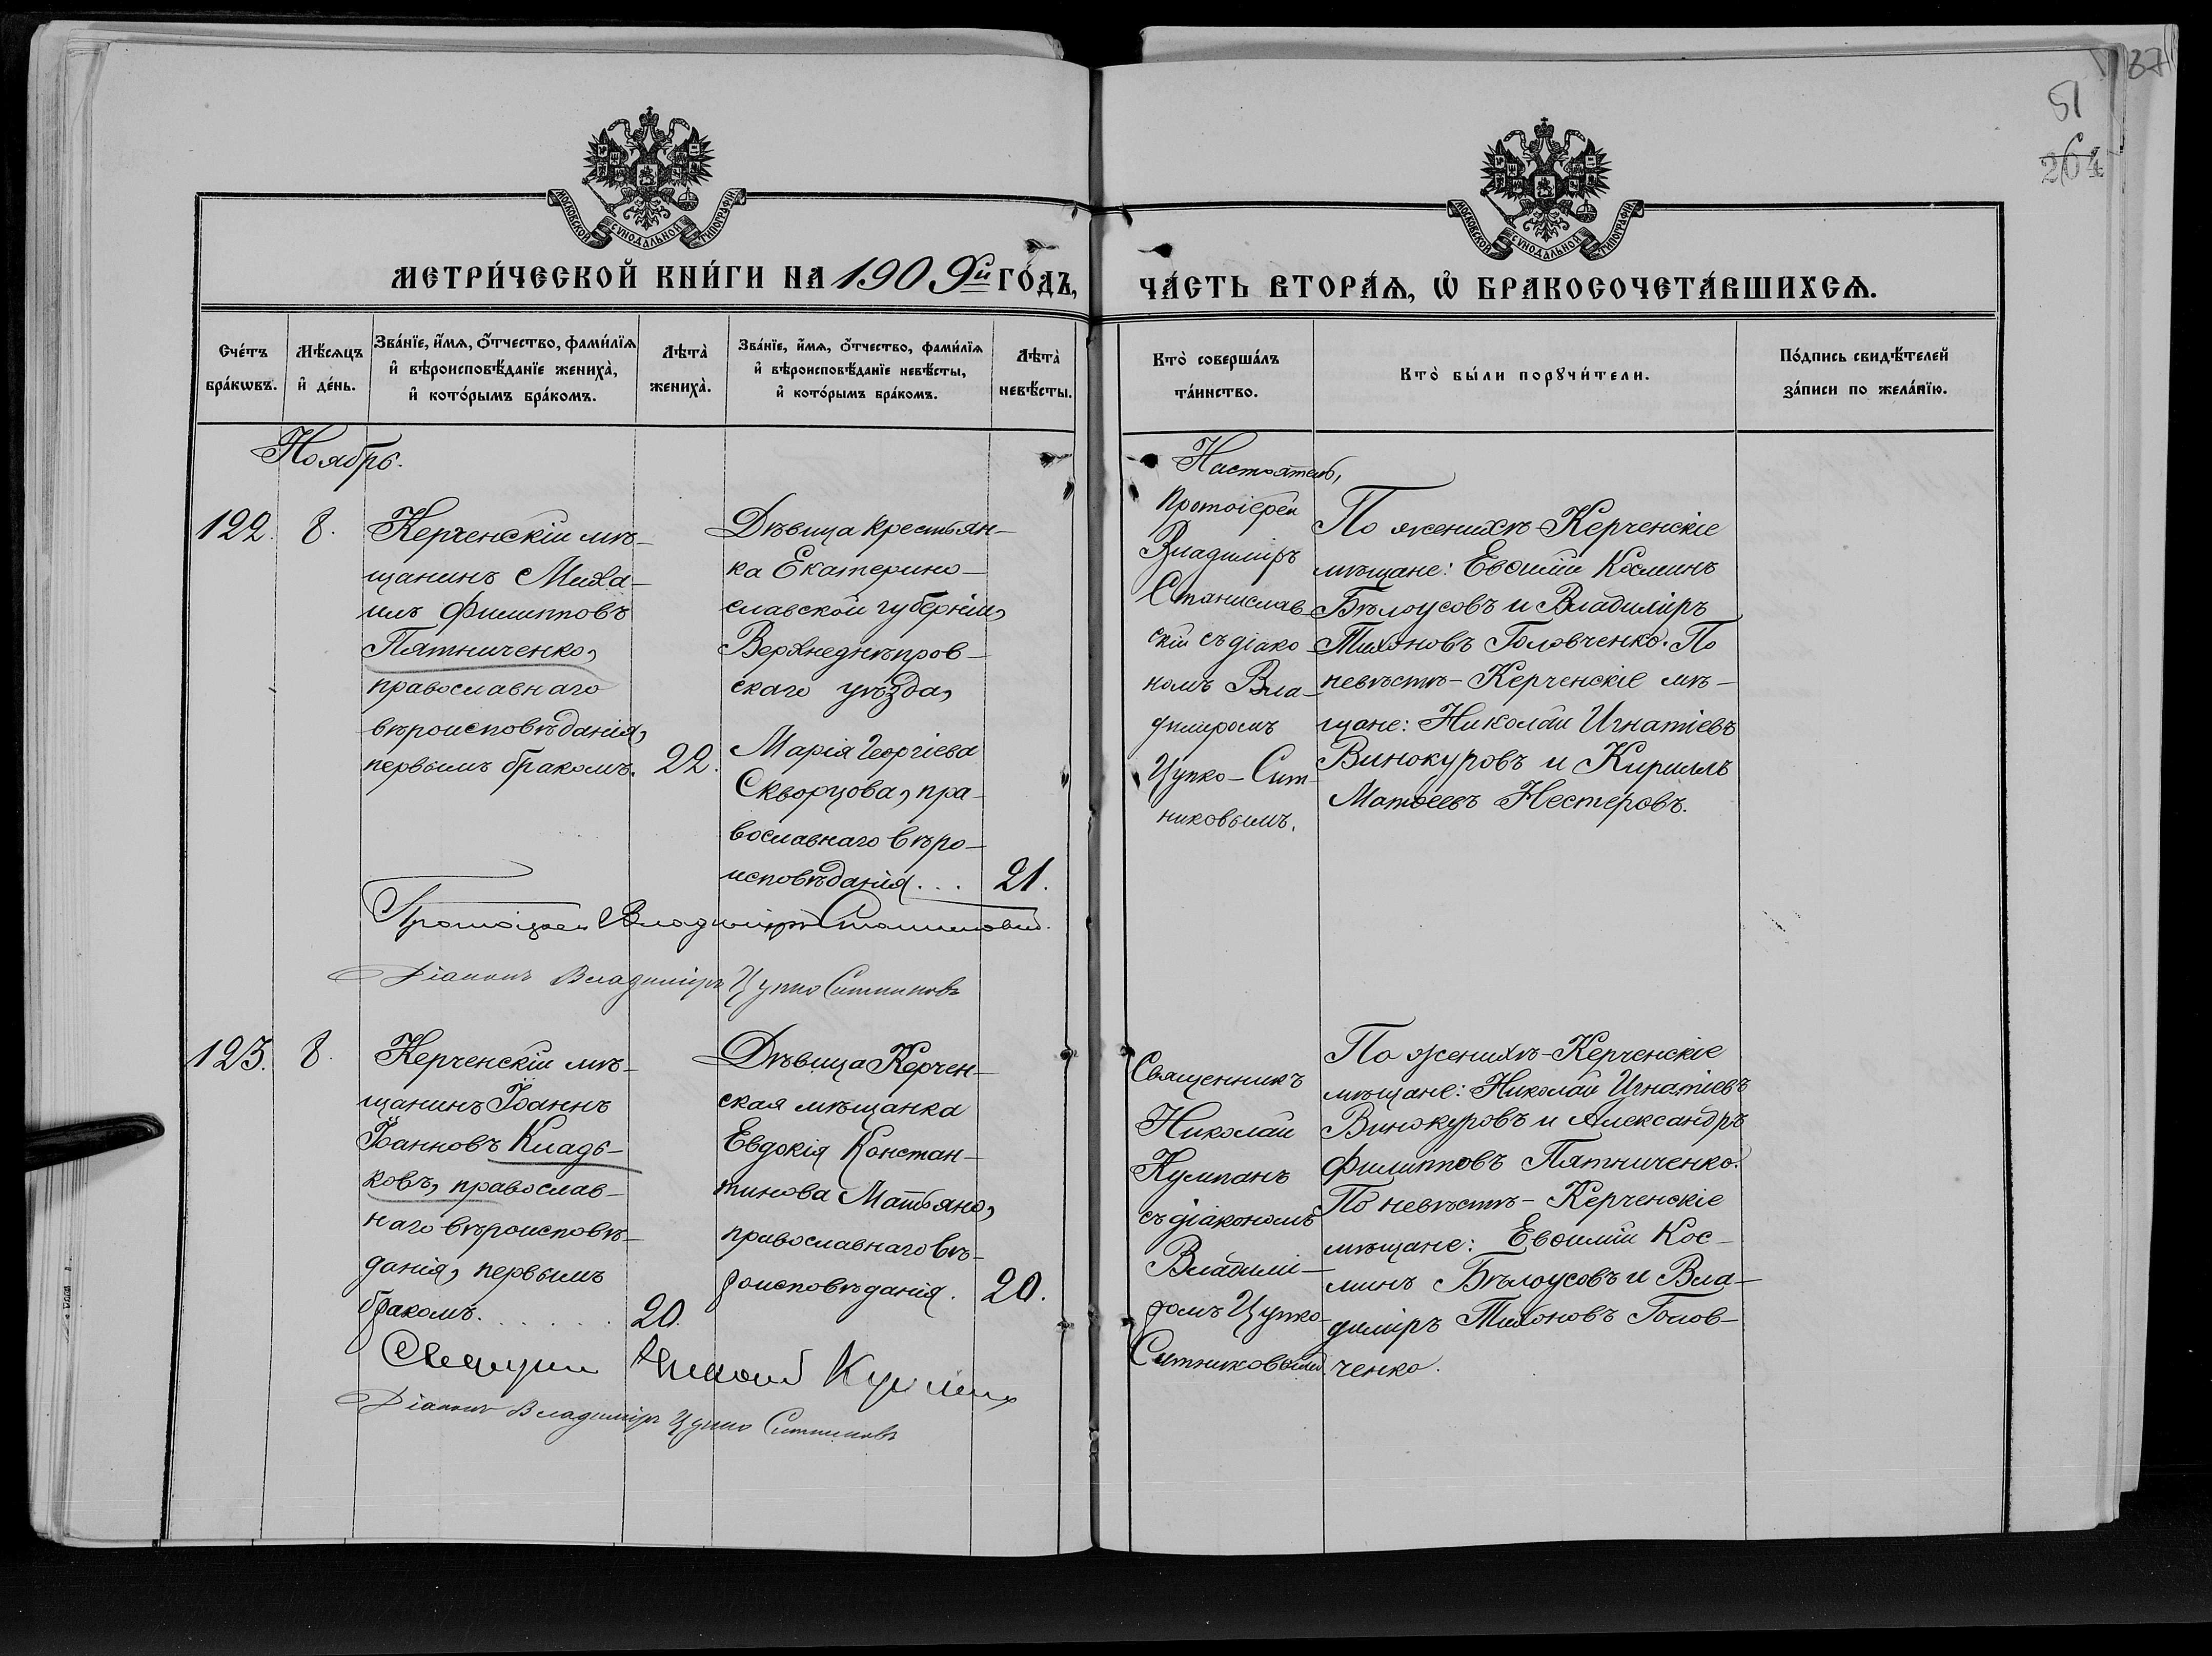 37
51
264
МОСКОВСКОЙ СѴНОДАЛЬНОЙ ТИПОГРАФІИ
МОСКОВСКОЙ СѴНОДАЛЬНОЙ ТИПОГРАФІИ
МЕТРИ́ЧЕСКОЙ КНИ́ГИ НА 1909й ГО́ДЪ,
ЧА́СТЬ ВТОРА́Ѧ, Ѡ҆ БРАКОСОЧЕТА́ВШИХСѦ.
Сче́тъ бра́кѡвъ.
Мѣ́сѧцъ и҆ де́нь.
Зва́нїе, и҆́мѧ, ѻ҆́тчество, фами́лїѧ
и҆ вѣроисповѣ́данїе жениха̀,
и҆ кото́рымъ бра́комъ.
Лѣта̀ жениха̀.
Зва́нїе, и҆́мѧ, ѻ҆́тчество, фами́лїѧ
и҆ вѣроисповѣ́данїе невѣ́сты,
и҆ кото́рымъ бра́комъ.
Лѣта̀ невѣ́сты.
Кто̀ соверша́лъ та́инство.
Кто̀ бы́ли порꙋчи́тели.
По́дпись свидѣ́телей
за́писи по жела́нїю.
Ноябрь.
122.
8.
Керченскій мѣ-
щанинъ Миха-
илъ Филипповъ
Пятниченко,
православнаго
вѣроисповѣданія,
первымъ бракомъ.
22.
Дѣвица крестьян-
ка Екатерино-
славской губерніи,
Верхнеднѣпров-
скаго уѣзда,
Марія Георгіева
Скворцова, пра-
вославнаго вѣро-
исповѣданія...
21.
Настоятель,
Протоіерей
Владиміръ
Станислав
скій съ діако
номъ Вла-
диміромъ
Цупко-Сит-
никовымъ.
По женихѣ-Керченскіе
мѣщане: Евѳимій Косминъ
Бѣлоусовъ и Владиміръ
Тихоновъ Головченко. По
невѣстѣ-Керченскіе мѣ-
щане: Николай Игнатіевъ
Винокуровъ и Кириллъ
Матѳеевъ Нестеровъ.
Протоіерей Владиміръ Станиславскій.
Діаконъ Владиміръ Цупко Ситниковъ
123.
8.
Керченскій мѣ-
щанинъ Іоаннъ
Іоанновъ Кладь-
ковъ, православ-
наго вѣроисповѣ-
данія, первымъ
бракомъ......
20.
Дѣвица Керчен-
ская мѣщанка
Евдокія Констан-
тинова Матьяно,
православнаго вѣ-
роисповѣданія.
20.
Священникъ
Николай
Кумпанъ
съ діакономъ
Владимі-
ромъ Цупко-
Ситниковымъ.
По женихѣ-Керченскіе
мѣщане: Николай Игнатіевъ
Винокуровъ и Александръ
Филипповъ Пятниченко.
По невѣстѣ-Керченскіе
мѣщане: Евѳимій Кос-
минъ Бѣлоусовъ и Вла-
диміръ Тихоновъ Голов-
ченко.
Священ Николай Кумпанъ
Діаконъ Владиміръ Цупко Ситниковъ